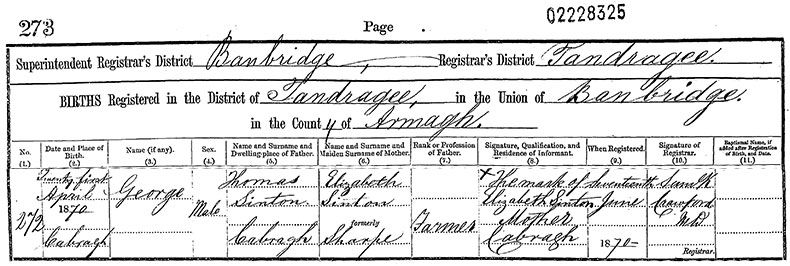 02228325
273 Page
Superintendent Registrar's District Banbridge, Registrar's District Tandragee.
BIRTHS Registered in the District of Tandragee, in the Union of Banbridge.
in the County of Armagh.
No. (1.) Date and Place of Birth. (2.) Name (if any). (3.) Sex. (4.) Name and Surname and Dwelling-place of Father. (5.) Name and Surname and Maiden Surname of Mother. (6.) Rank or Profession of Father. (7.) Signature, Qualification, and Residence of Informant. (8.) When Registered. (9.) Signature of Registrar. (10.) Baptismal Name, if added after Registration of Birth, and Date. (11.)
Twenty first Thomas Elizabeth X The mark of Seventeenth Saml K
April George Sinton Sinton Elizabeth Sinton June Crawford
1870 Male formerly Farmer Mother MD
272 Cabragh Cabragh Sharpe Cabragh 1870 Registrar.